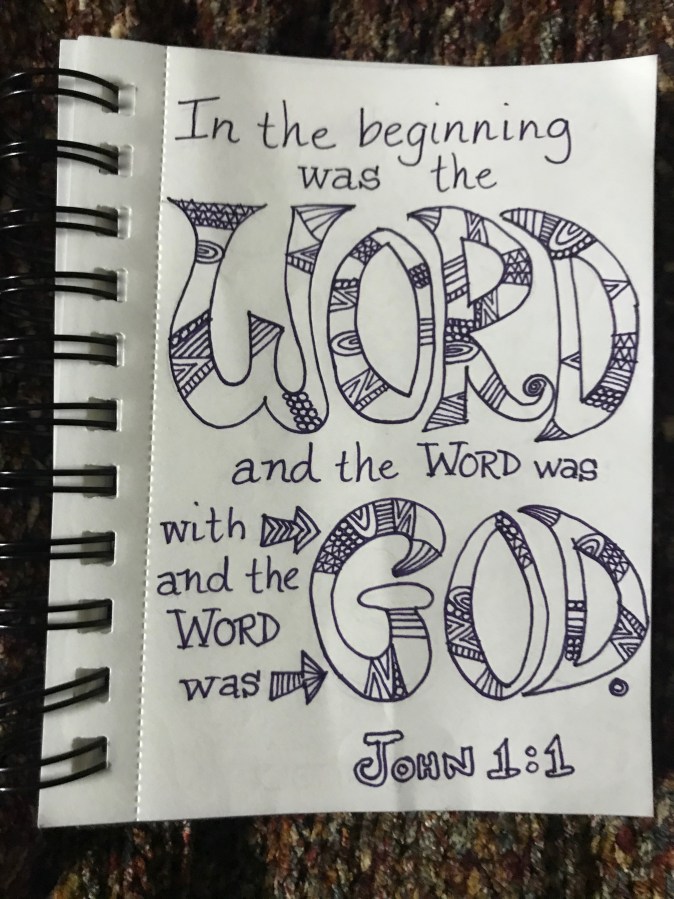 In the beginning
was the
WORD
and the WORD was
with
and the
WORD
was
GOD.
John 1:1